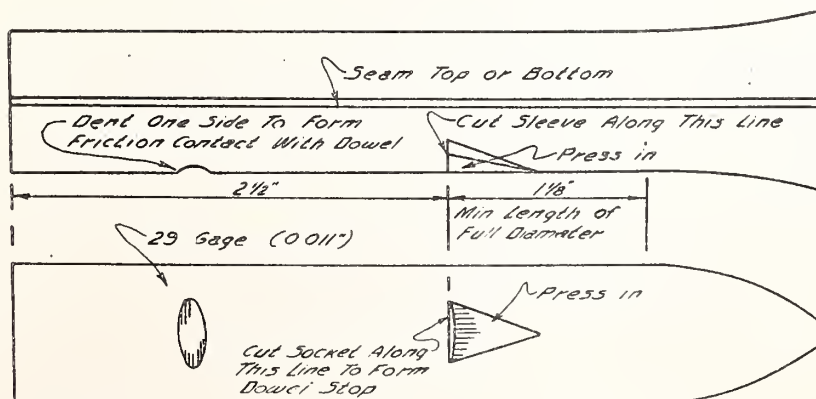 Seam Top or Bottom
Dent One Side To Form
Friction Contact With Dowel
Cut Sleeve Along This Line
Press in
2½"
1⅛"
Min Length of
Full Diameter
29 Gage (0.011")
Press in
Cut Socket Along
This Line To Form
Dowel Stop